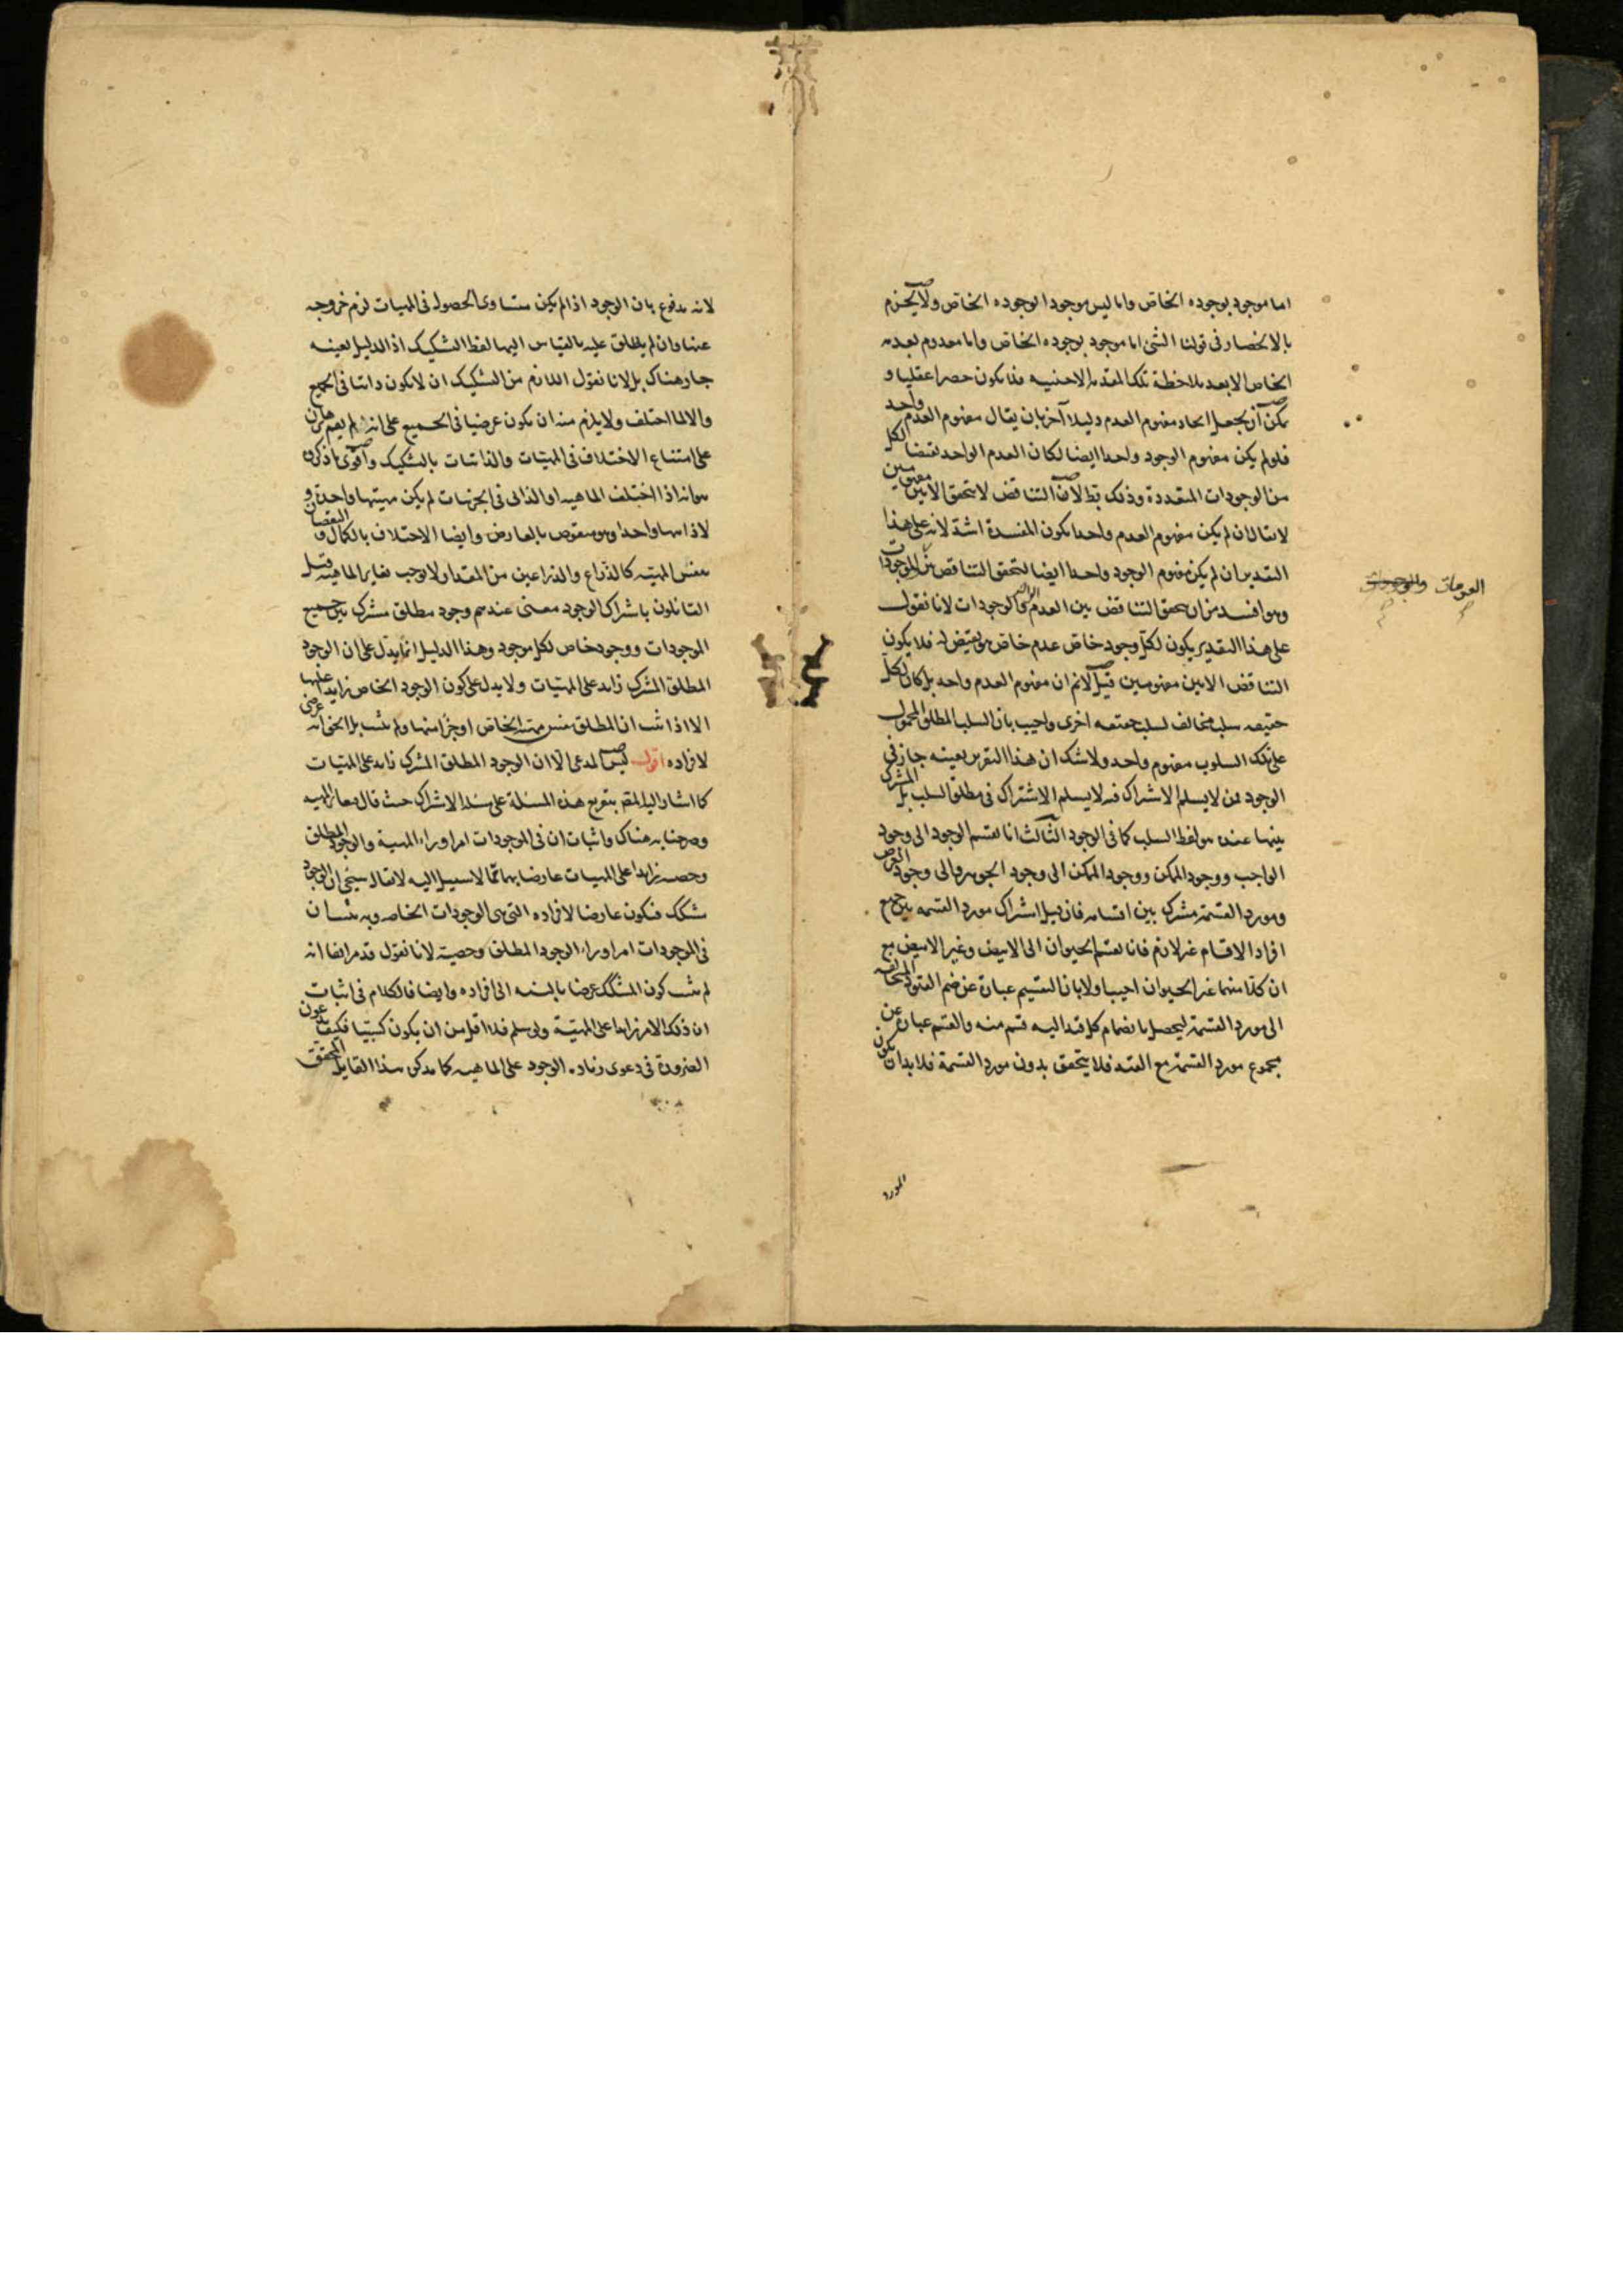 اما موجود بوجوده الخاص واما ليس موجودا بوجوده الخاص ولا يجزم
بالانحصار في قولنا الشئ اما موجود بوجوده الخاص واما معدوم بعدمه
الخاص الا بعد ملاحظة تلك المقدمة الاجنبيه فلا يكون حصرا عقليا و
يمكن ان يجعل اتحاد مفهوم العدم دليلا آخر بان يقال مفهوم العدم واحد
فلو لم يكن مفهوم الوجود واحدا ايضا لكان العدم الواحد نقيضا لكل
من الوجودات المتعددة وذلك بط لان التناقض لا يتحقق الا بين مفهومين
لا يقال ان لم يكن مفهوم العدم واحدا يكون المفسدة اشد لانه على هذا
التقدير ان لم يكن مفهوم الوجود واحدا ايضا لتحقق التناقض بين الموجودات
وهو افسد من ان يتحقق التناقض بين العدم الواحد والوجودات لانا نقول
على هذا التقدير يكون لكل وجود خاص عدم خاص هو نقيض له فلا يكون
التناقض الا بين مفهومين قيل لانم ان مفهوم العدم واحد بل كان لكل
حقيقه سلب مخالف لسلب حقيقه اخرى واجيب بان السلب المطلق المحمول
على تلك السلوب مفهوم واحد ولا شك ان هذا التقرير بعينه جاز في
الوجود لمن لا يسلم الاشتراك فيه لا يسلم الاشتراك في مطلق السلب بل المشترك
بينها عنده هو لفظ السلب كما في الوجود الثالث انا نقسم الوجود الى وجود
الواجب ووجود الممكن ووجود الممكن الى وجود الجوهر والى وجود العرض
ومورد القسمة مشترك بين اقسامه فان قيل اشتراك مورد القسمه بين جميع
افراد الاقسام غير لازم فانا نقسم الحيوان الى الابيض وغير الابيض مع
ان كلا منهما غير الحيوان اجيب اولا بان التقسيم عبارة عن ضم القيود المتخالفه
الى مورد القسمة ليحصل بانضمام كل قيد اليه قسم منه والقسم عبارة عن
مجموع مورد القسمة مع القيد فلا يتحقق بدون مورد القسمة فلا بد ان يكون
المورد
العدمات والموجودات
لانه مدفوع بان الوجود اذا لم يكن متساوى الحصول في المهيات لزم خروجه
عنها وان لم يطلق عليه بالقياس اليها لفظ التشكيك اذ الدليل بعينه
جار هناك بل لانا نقول اللازم من التشكيك ان لا يكون ذاتيا في الجميع
والا لما اختلف ولا يلزم منه ان يكون عرضيا في الجميع على انه لم يقم برهان
على امتناع الاختلاف في المهيات والذاتيات بالتشكيك واقوى ما ذكروه
هو انه اذا اختلف الماهيه او الذاتى في الجزئيات لم يكن مهيتها واحدة و
لا ذاتيها واحدا وهو منقوض بالعارض وايضا الاختلاف بالكمال والنقصان
بنفس المهيه كالذراع والذراعين من المقدار لا يوجب تغاير الماهيه قيل
القائلون باشتراك الوجود معنى عندهم وجود مطلق مشترك بين جميع
الموجودات ووجود خاص لكل موجود وهذا الدليل انما يدل على ان الوجود
المطلق المشترك زايد على المهيات ولا يدل على كون الوجود الخاص زايدا عليها
الا اذا ثبت ان المطلق نفس مهية الخاص او جزء منها ولم يثبت بل الحق انه عرضى
لافراده اقول ليس المدعى الا ان الوجود المطلق المشترك زايد على المهيات
كما اشار اليه المقم بتفريع هذه المسئلة على مسئلة الاشتراك حيث قال فيغاير المهيه
وصرحنا به هناك واثبات ان في الموجودات امرا وراء المهية والوجود المطلق
وحصته زايدا على المهيات عارضا بها مما لا سبيل اليه لا يقال سيجئ ان الوجود
مشكك فيكون عارضا لافراده التي هى الوجودات الخاصه وبه يثبت ان
في الموجودات امرا وراء الوجود المطلق وحصته لانا نقول قد مر ايضا انه
لم يثبت كون المشكك عرضيا بالنسبه الى افراده وايضا فالكلام في اثبات
ان ذلك الامر زايدا على المهية ولو سلم فلا اقل من ان يكون كسبيا فكيف يدعون
الضرورة في دعوى زيادة الوجود على الماهيه كما يذكره هذا القايل المحقق